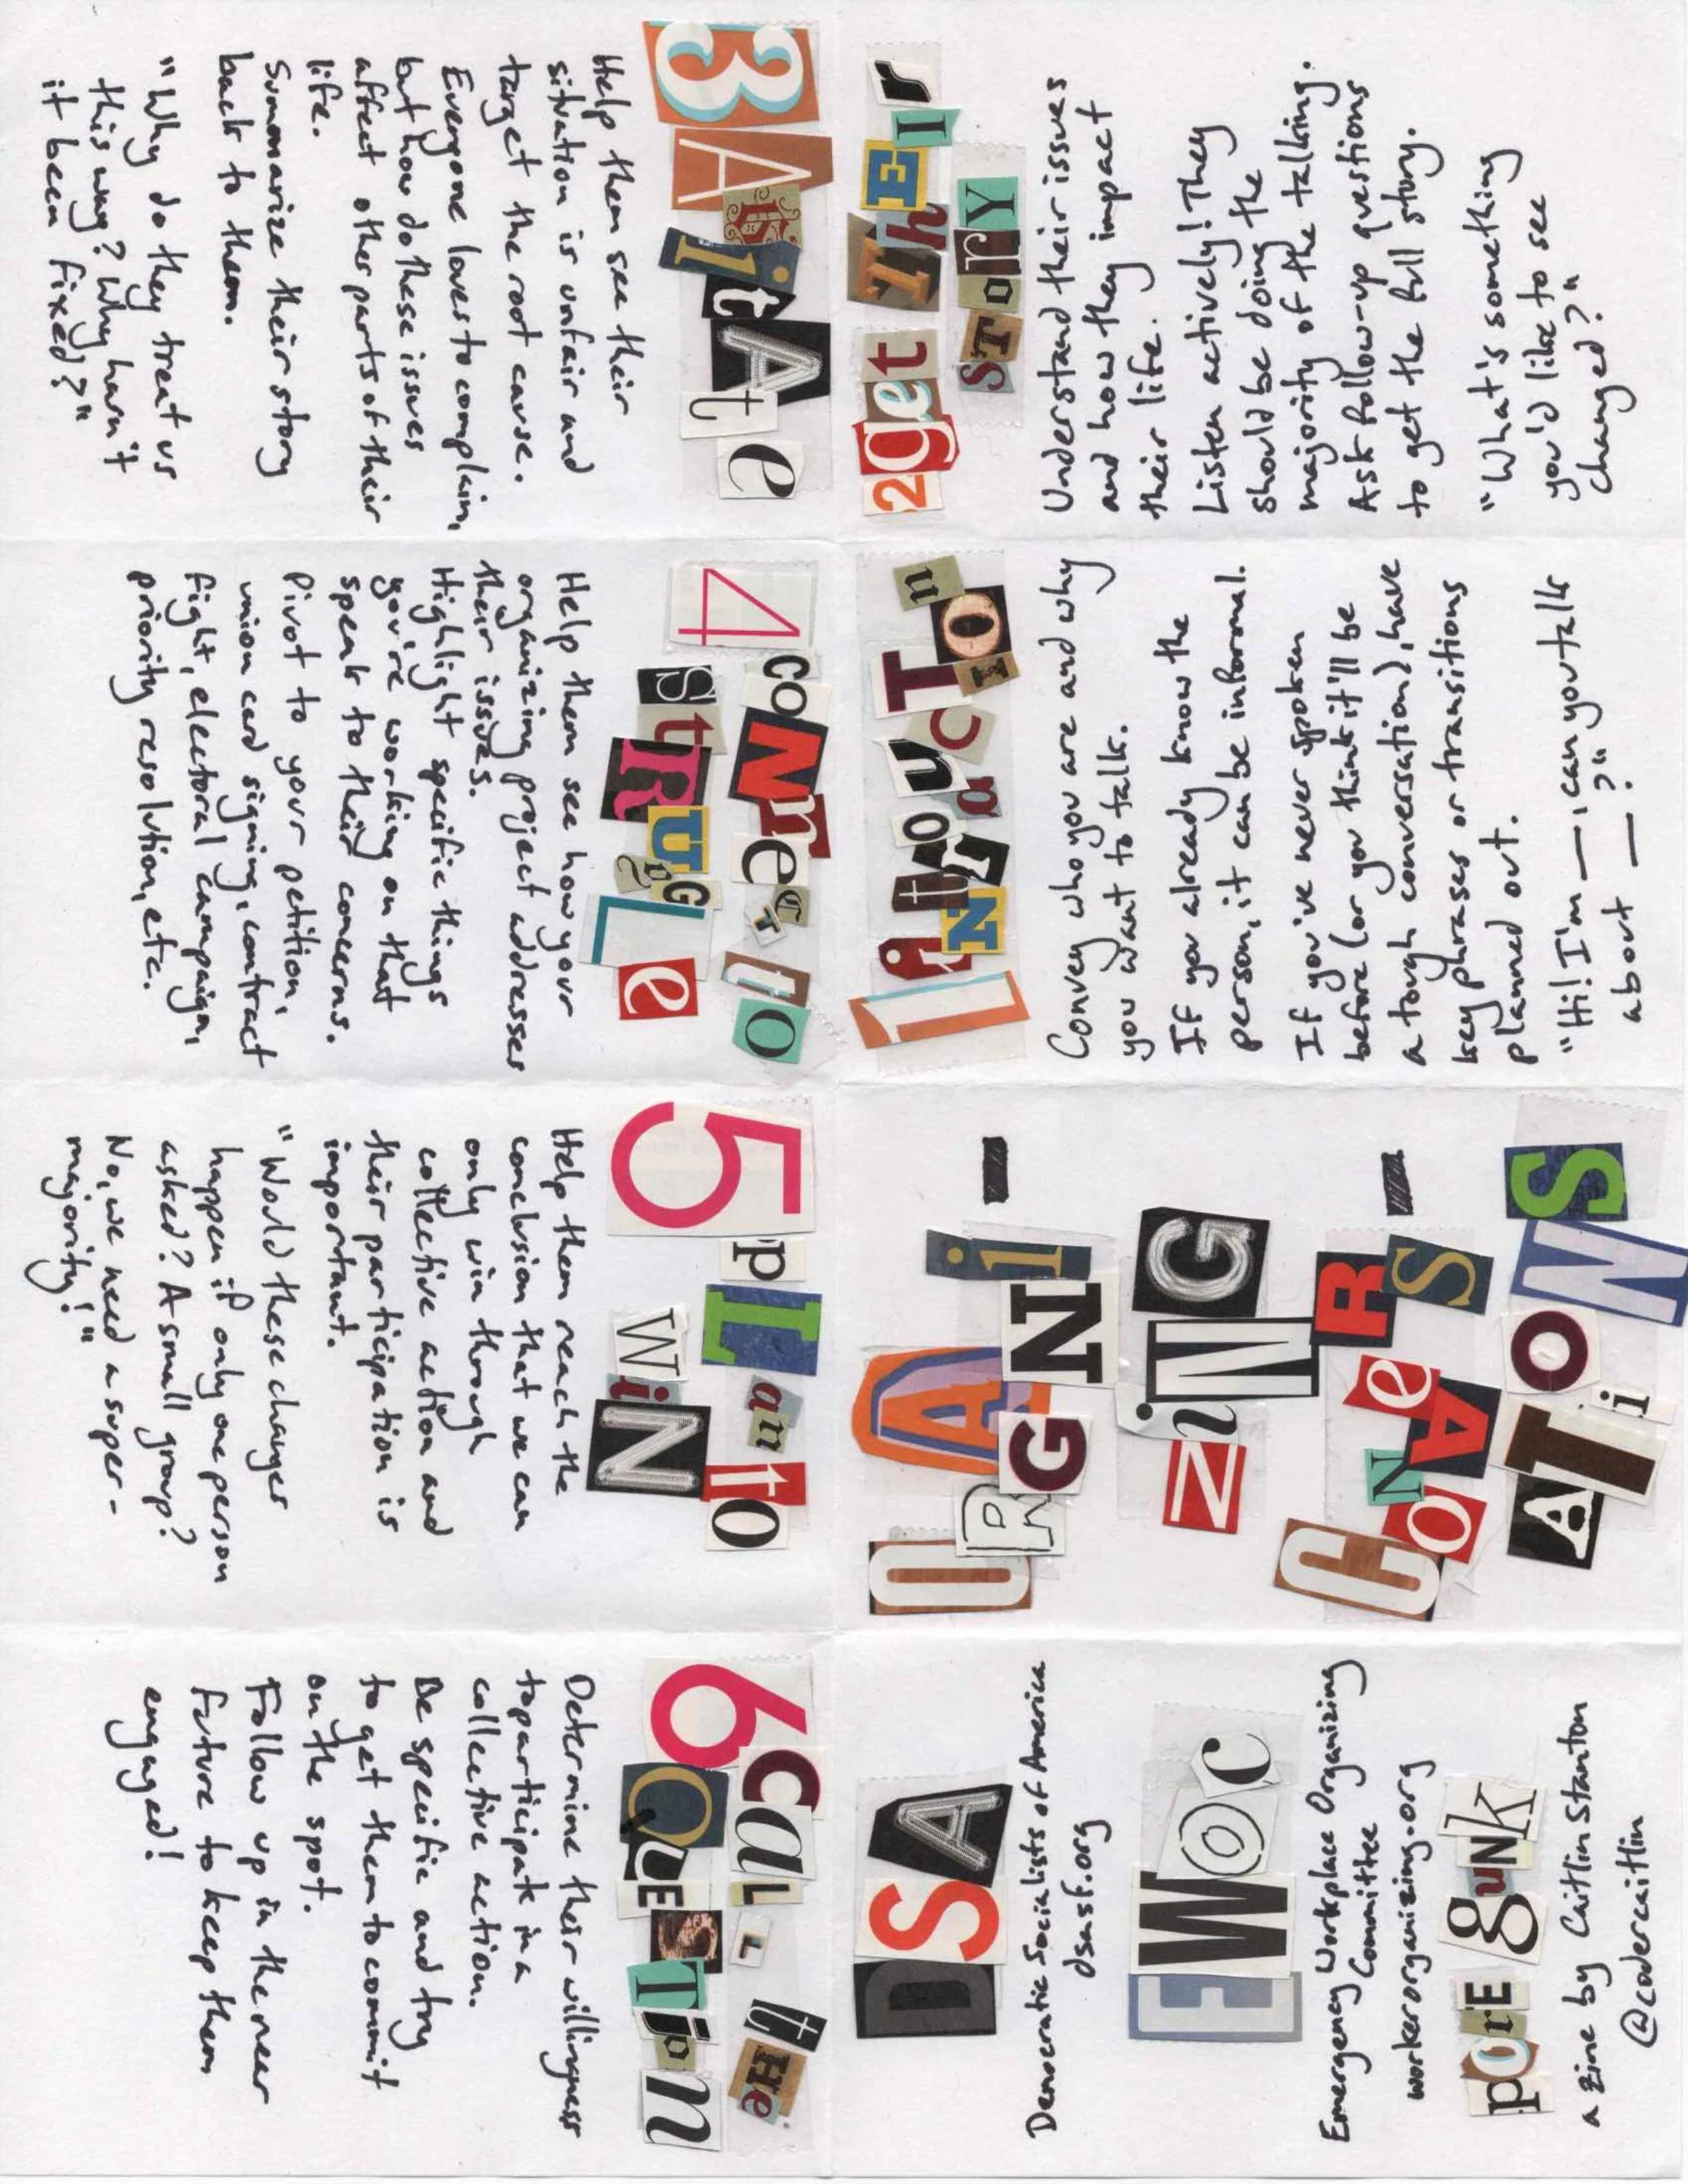 ORGANI-
ZiNG
CONVeRS-
ATiONS
1 INtrODUCTIOn
Convey who you are and why
you want to talk.
If you already know the
person, it can be informal.
If you've never spoken
before (or you think it'll be
a tough conversation), have
key phrases or transitions
planned out.
"Hi! I'm —, can you talk
about —?"
2 get ThEIr
STorY
Understand their issues
and how they impact
their life.
Listen actively! They
should be doing the
majority of the talking.
Ask follow-up questions
to get the full story.
"What's something
you'd like to see
changed?"
3 AgitAte
Help them see their
situation is unfair and
target the root cause.
Everyone loves to complain,
but how do these issues
affect other parts of their
life.
Summarize their story
back to them.
"Why do they treat us
this way? Why hasn't
it been fixed?"
4 coNnecT to
StRUgGLe
Help them see how your
organizing project addresses
their issues.
Highlight specific things
you're working on that
speak to their concerns.
Pivot to your petition,
union card signing, contract
fight, electoral campaign,
priority resolution, etc.
5 pLan to
WiN
Help them reach the
conclusion that we can
only win through
collective action and
their participation is
important.
"Would these changes
happen if only one person
asked? A small group?
No, we need a super-
majority!"
6 CaLL tHe
QUESTion
Determine their willingness
to participate in a
collective action.
Be specific and try
to get them to commit
on the spot.
Follow up in the near
future to keep them
engaged!
DSA
Democratic Socialists of America
dsasf.org
EWOC
Emergency Workplace Organizing
Committee
workerorganizing.org
pOrE gUNk
a zine by Caitlin Stanton
@codercaitlin